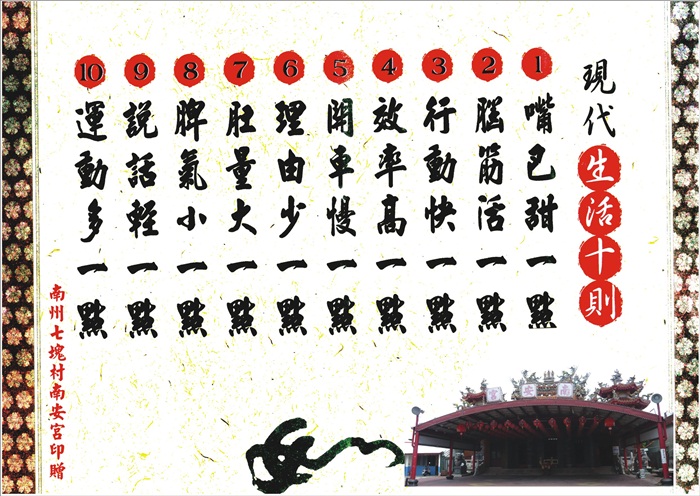 現代生活十則
1 嘴巴甜一點
2 腦筋活一點
3 行動快一點
4 效率高一點
5 開車慢一點
6 理由少一點
7 肚量大一點
8 脾氣小一點
9 說話輕一點
10 運動多一點
南州七塊村南安宮印贈
宮安南